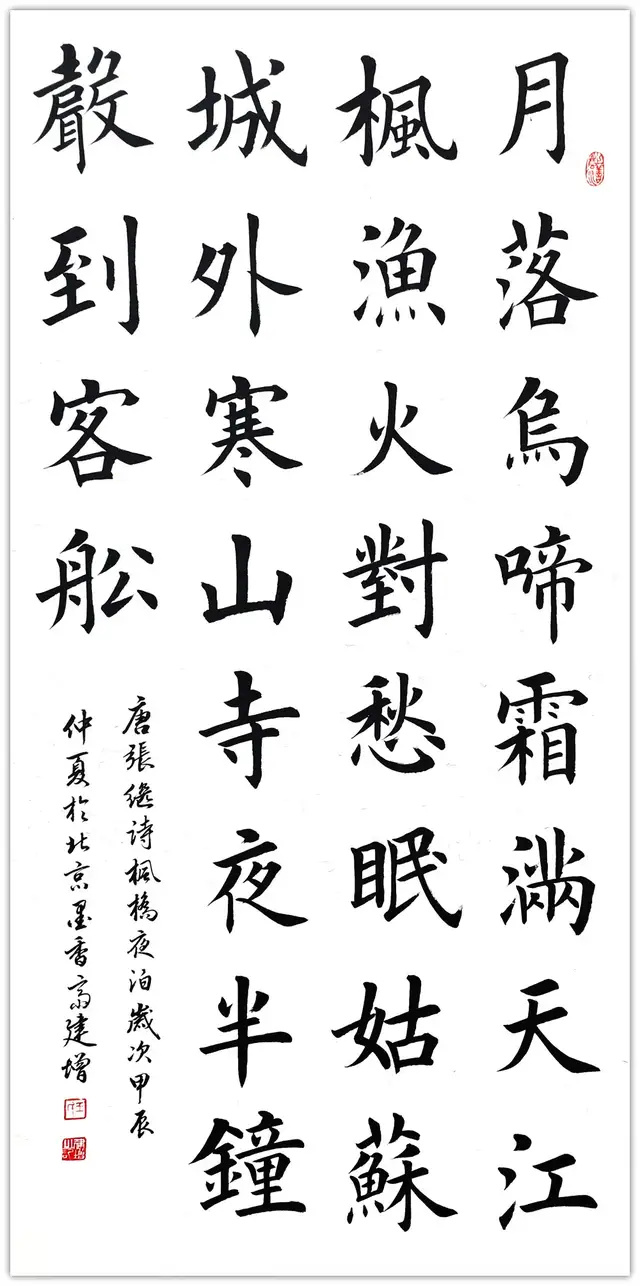 月落烏啼霜滿天江
楓漁火對愁眠姑蘇
城外寒山寺夜半鐘
聲到客舩
唐張繼詩楓橋夜泊歲次甲辰
仲夏於北京墨香齋建增